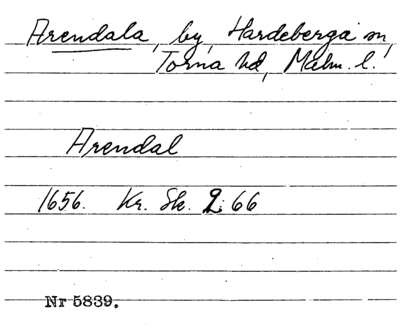 Arendala, by, Hardeberga sn,
Torna hd, Malm. l.
Arendal
1656. Kr. Sk. 2: 66
Nr 5839.